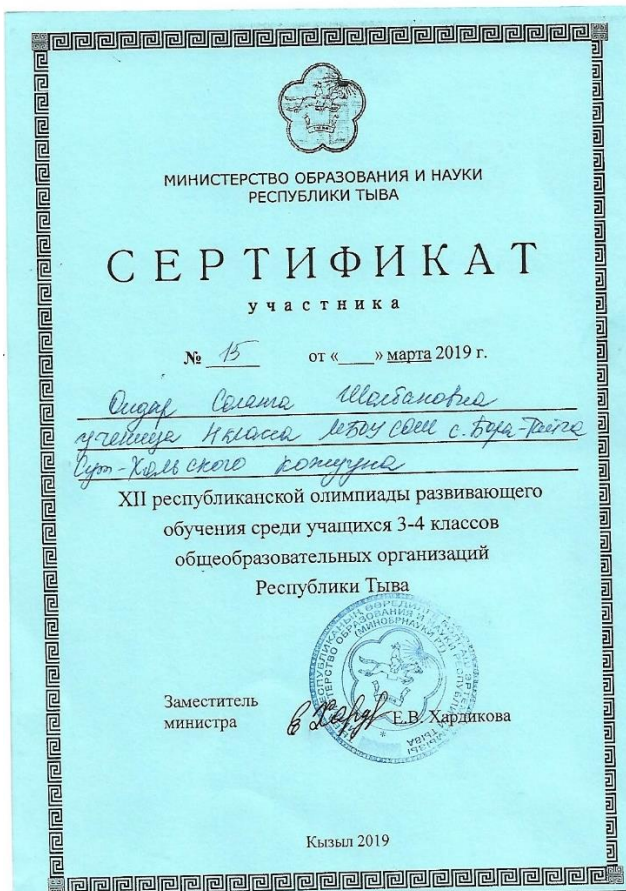 МИНИСТЕРСТВО ОБРАЗОВАНИЯ И НАУКИ
РЕСПУБЛИКИ ТЫВА
СЕРТИФИКАТ
участника
№ 15 от «____» марта 2019 г.
Ондар Шолбановна
ученица 4 класса МБОУ СОШ с. Бора-Тайга
Сут-Хольского кожууна
XII республиканской олимпиады развивающего
обучения среди учащихся 3-4 классов
общеобразовательных организаций
Республики Тыва
Заместитель
министра Е.В. Хардикова
Кызыл 2019